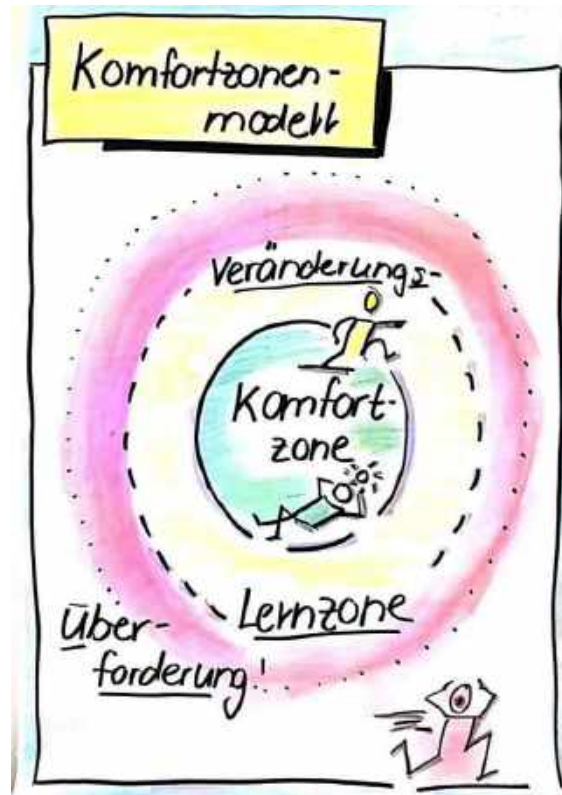 Komfortzonen-
modell
Veränderungs-
Komfort-
zone
Lernzone
Über-
forderung!